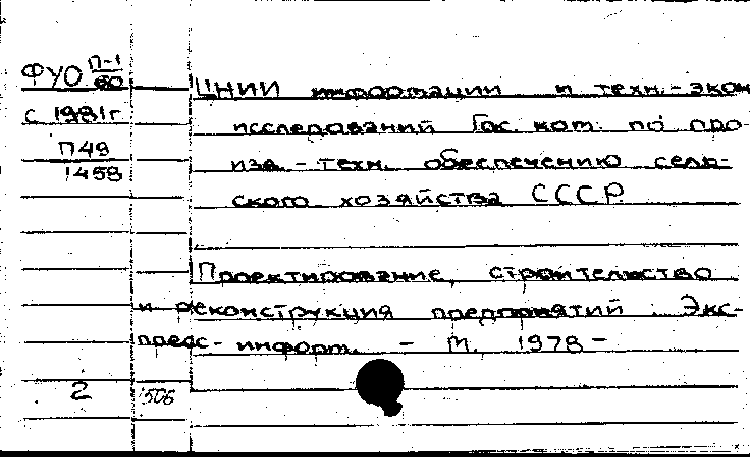 ФУО П-1
60
с 1981г
П49
1458
ЦНИИ информации и техн.-экон
исследований Гос. ком. по про-
изв.-техн. обеспечению сель-
ского хозяйства СССР
Проектирование, строительство
и реконструкция предприятий. Экс-
пресс-информ. - М. 1978 -
2
1506